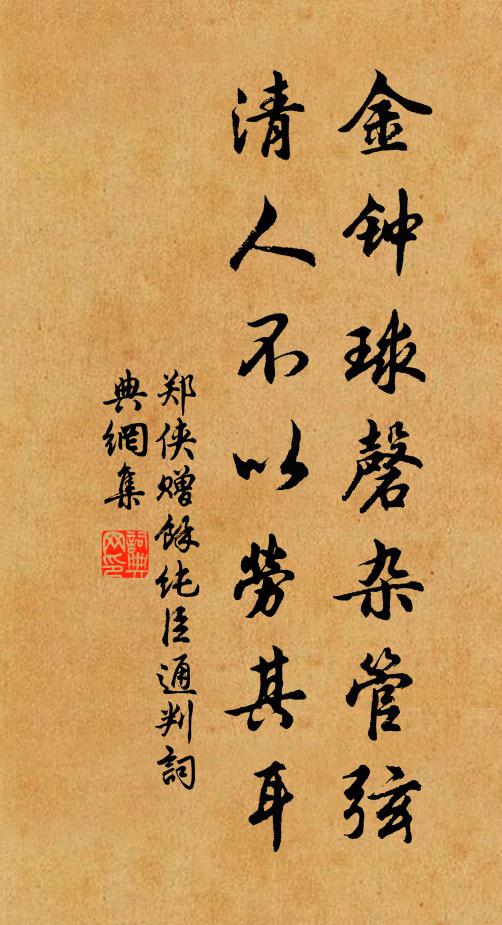 金钟球磬杂管弦
清人不以劳其耳
郑侠赠馀纯臣通判詞
典網集
詞典網印